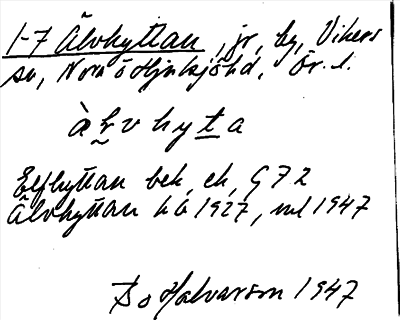 1-7 Älvhyttan, jr, by, Vikers
sn, Nora ö Hjulsjöhd, Ör. l.
àḷvhyṯa
Elfhyttan bek, ek, G 72
Älvhyttan hå 1927, ml 1947
Bo Halvarson 1947